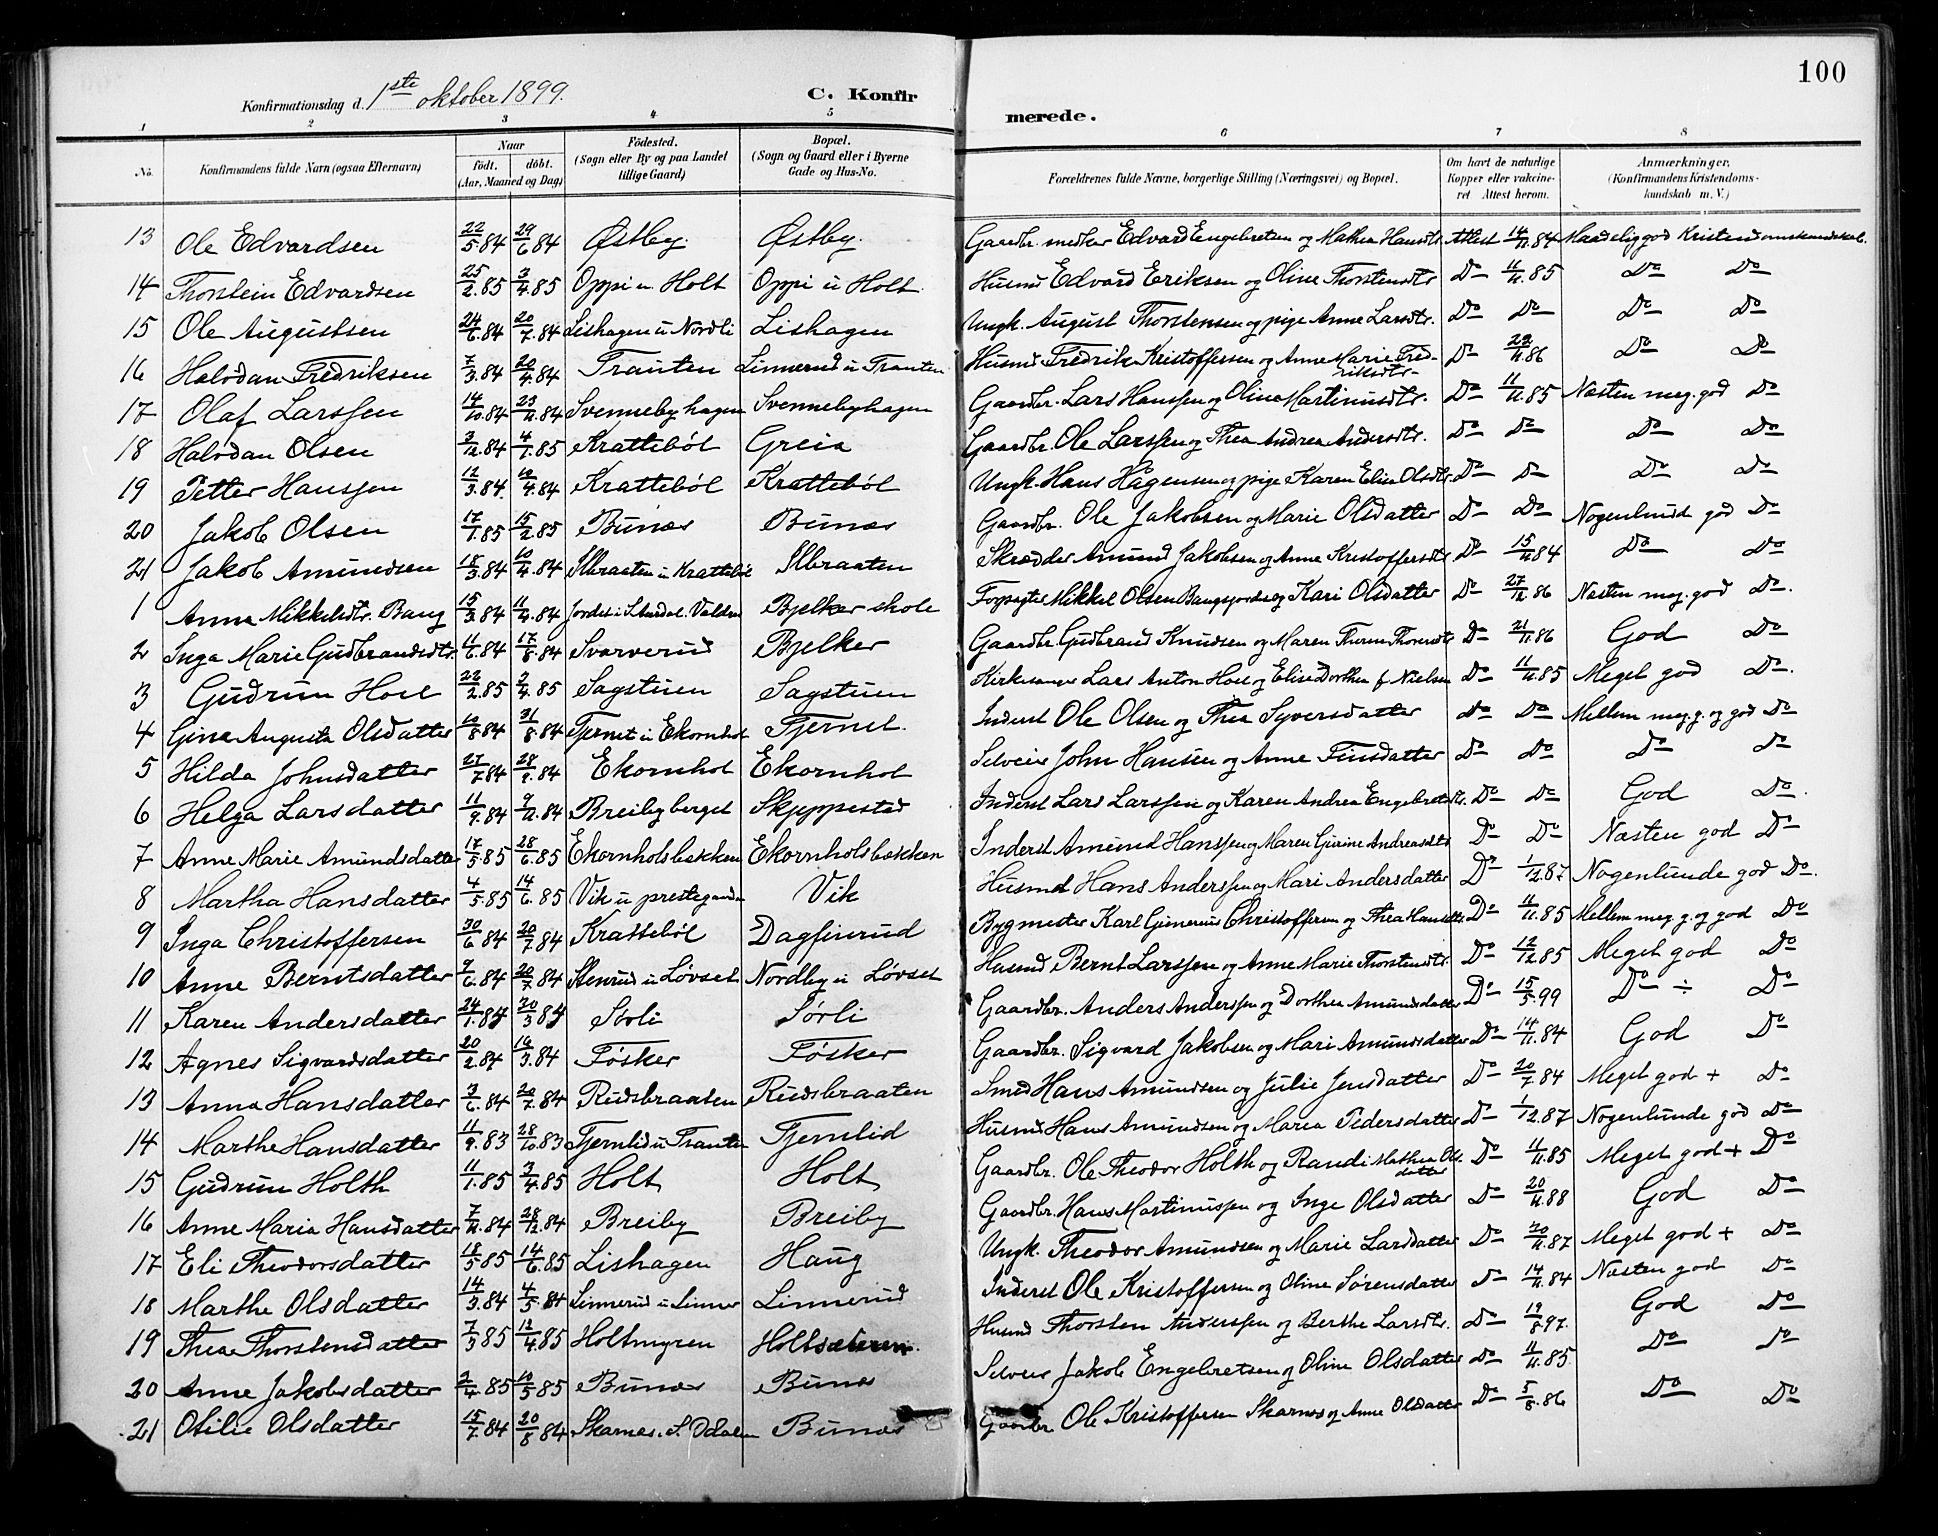 100
Konfirmationsdag d. 1ste oktober 1899.
C. Konfirmerede.
1 2 3 4 5 6 7 8
No. Konfirmandens fulde Navn (ogsaa Efternavn) Naar født. døbt. (Aar, Maaned og Dag) Fødested. (Sogn eller By og paa Landet tillige Gaard) Bopæl. (Sogn og Gaard eller i Byerne Gade og Hus-No. Forældrenes fulde Navne, borgerlige Stilling (Næringsvei) og Bopæl. Om havt de naturlige Kopper eller vakcineret. Attest herom. Anmærkninger, (Konfirmandens Kristendomskundskab m. V.)
13 Ole Edvardsen 22/5 84 29/6 84 Østby. Østby. Gaardbr. Edvard Engebretsen og Mathea Hansdtr. Attest 14/11 84 Maadelig god Kristendomskundskab.
14 Thorstein Edvardsen 25/2 85 3/4 85 Oppi u. Holt Oppi u Holt. Husmd Edvard Eriksen og Oline Thorstensdtr Do 11/11 85 Do Do
15 Ole Augustsen 24/6 84 20/7 84 Lishagen u Nordli Lishagen Ungk. August Thorstensen og pige Anne Larsdtr. Do Do Do Do
16 Halvdan Fredriksen 7/3 84 20/4 84 Tranten Linnerud u Tranten Husmd Fredrik Kristoffersen og Anne Marie Fredriksdtr Do 22/11 86 Do Do
17 Olaf Larssen 14/10 84 23/11 84 Svennebyhagen Svennebyhagen Gaardbr. Lars Hanssen og Oline Martinusdtr. Do 11/11 85 Næsten meg. god Do
18 Halvdan Olsen 3/12 84 4/1 85 Krattebøl Greia Gaardbr. Ole Larssen og Thea Andrea Andersdtr. Do Do Do Do
19 Petter Hanssen 12/3 84 Krattebøl Krattebøl Ungk. Hans Hagensen og pige Karen Elise Olsdtr Do Do Do Do
20 Jakob Olsen 17/1 85 15/2 85 Bunæs Bunæs Gaardbr. Ole Jakobsen og Marie Olsdatter Do Do Nogenlund god Do
21 Jakob Amundsen 18/3 84 10/4 84 Ilbraaten u Krattebøl Ilbraaten Skrædder Amund Jakobsen og Anne Kristoffersdtr Do 15/11 84 Do Do
1 Anna Mikkelsdtr. Bang 15/3 84 11/4 84 Valdres Bjelker skole Forpagter Mikkel Olsen og Kari Olsdatter Do 27/12 86 Næsten meg. god Do.
2 Inga Marie Gudbrandsdtr. 11/6 84 17/8 84 Svarverud Bjelker Gaardbr. Gudbrand Knudsen og Maren Do 21/11 86 God Do
3 Gudrun Hoel 22/2 85 3/4 85 Sagstuen Sagstuen Lars Anton Hoel og Elise Dorthea f. Nielsen Do 11/11 85 Meget god Do.
4 Gina Augusta Olsdatter 10/8 84 31/8 84 Tjernet u Ekornhol Tjernet. Inderst Ole Olsen og Thea Syversdatter Do Do Mellem meg. g. og god Do
5 Hilda Johnsdatter 27/7 84 28/9 84 Ekornhol Ekornhol Selveier John Hansen og Anne Finsdatter Do Do Do Do
6 Helga Larsdatter 11/9 84 9/11 84 Breibyberget Skjeppestad Inderst Lars Larssen og Karen Andrea Engebretsdtr. Do Do God Do.
7 Anne Marie Amundsdatter 17/5 85 28/6 85 Ekornholsbakken Ekornholsbakken Inderst Amund Hanssen og Maren Andreasdtr Do Do Næsten god Do
8 Martha Hansdatter 4/5 85 14/6 85 Vik u prestegaarden Vik Husmd Hans Anderssen og Mari Andersdatter Do 1/12 87 Nogenlunde god Do.
9 Inga Christoffersen 30/6 84 20/7 84 Krattebøl Dagfinrud Bygmester Karl Christoffersen og Thea Hansdtr. Do 11/11 85 Mellem meg. g. og god Do
10 Anne Berntsdatter 9/6 84 20/7 84 Stenrud u Løvset Nordby u Løvset Husmd Bernt Larssen og Anne Marie Thorstensdtr. Do 12/12 85 Meget god Do
11 Karen Andersdatter 24/1 84 20/3 84 Sørli Sørli Gaardbr. Anders Anderssen og Dorthea Amundsdatter Do 15/5 99 Do ÷ Do
12 Agnes Sigvardsdatter 20/2 84 16/3 84 Føsker Føsker Gaardbr. Sigvard Jakobsen og Mari Amundsdatter Do 14/11 84 God Do
13 Anna Hansdatter 3/6 84 20/7 84 Rudsbraaten Rudsbraaten Smed Hans Amundsen og Julie Jensdatter Do 20/7 84 Meget god + Do
14 Marthe Hansdatter 11/9 83 28/10 83 Tjernlid u Tranten Tjernlid Husmd Hans Amundsen og Maria Pedersdatter Do 1/12 87 Nogenlunde god Do
15 Gudrun Holth 11/1 85 3/4 85 Holt Holt Gaardbr. Ole Theodor Holth og Randi Mathea Olsdatter Do 11/11 85 Meget god + Do
16 Anne Maria Hansdatter 7/11 84 28/12 84 Breiby Breiby Gaardbr. Hans Martinussen og Inge Olsdatter Do 20/11 88 God Do
17 Eli Theodorsdatter 18/5 85 14/6 85 Lishagen Haug Ungk. Theodor Amundsen og Marie Larsdatter Do 20/11 87 Meget god + Do
18 Marthe Olsdatter 14/3 84 4/5 84 Linnerud u Linner Linnerud Inderst Ole Kristoffersen og Oline Sørensdatter Do 14/11 84 Næsten god Do
19 Thea Thorstensdatter 7/3 85 12/4 85 Holtmyren Holtsæteren. Husmd Thorsten Anderssen og Berthe Larsdtr. Do 19/8 97. God Do
20 Anne Jakobsdatter 2/4 85 10/5 85 Bunæs Bunæs Selveier Jakob Engebretsen og Oline Olsdatter Do 11/11 85. Do Do
21 Otilie Olsdatter 15/7 84 20/8 84 Skarnes. S. Odalen Bunæs Gaardbr Ole Kristoffersen Skarnes og Anne Olsdatter Do 5/8 86 Do Do